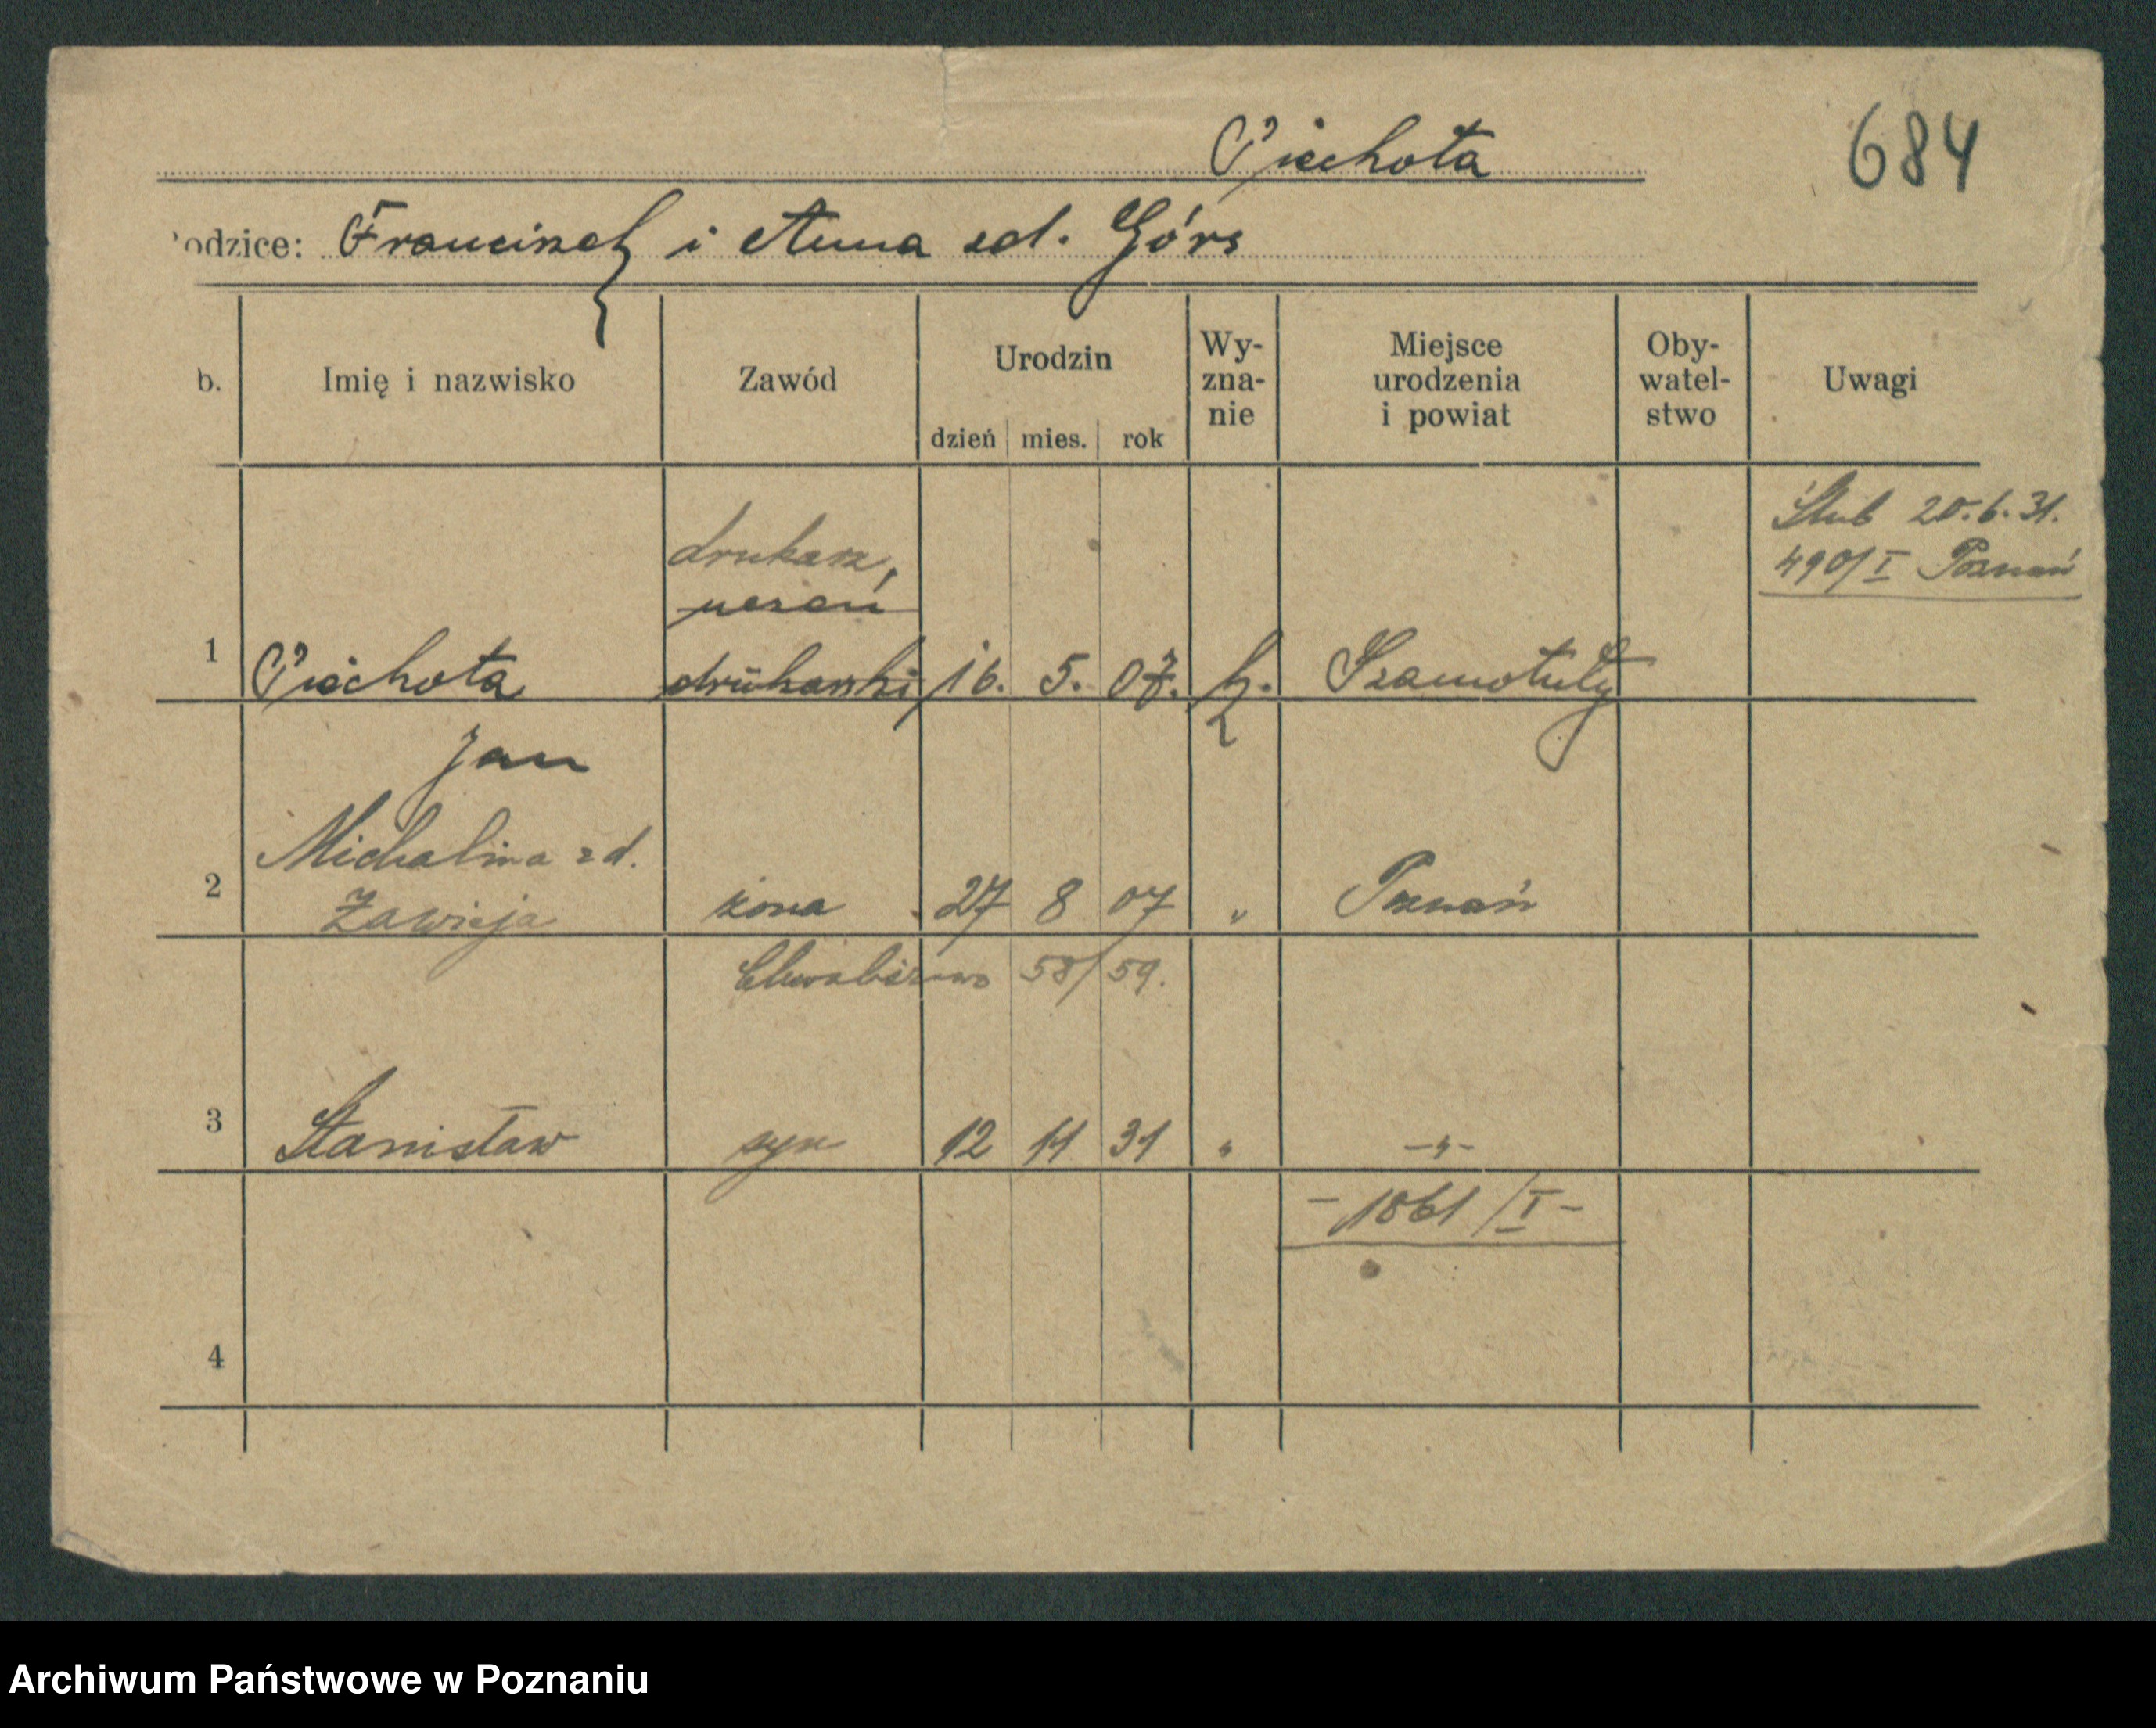 Piechota
684
odzice: Franciszek i Anna zd. Górs
b.
Imię i nazwisko
Zawód
Urodzin
dzień mies. rok
Wy-
zna-
nie
Miejsce
urodzenia
i powiat
Oby-
watel-
stwo
Uwagi
Ślub 20.6.31.
490/I Poznań
drukarz,
uczeń
1 Piechota drukarski 16. 5. 07. k. Szamotuły
Jan
Michalina zd.
2 Zawieja żona 27 8 07 " Poznań
58/59.
3 Stanisław syn 12 11 31 " -"-
- 1861/I -
4
Archiwum Państwowe w Poznaniu